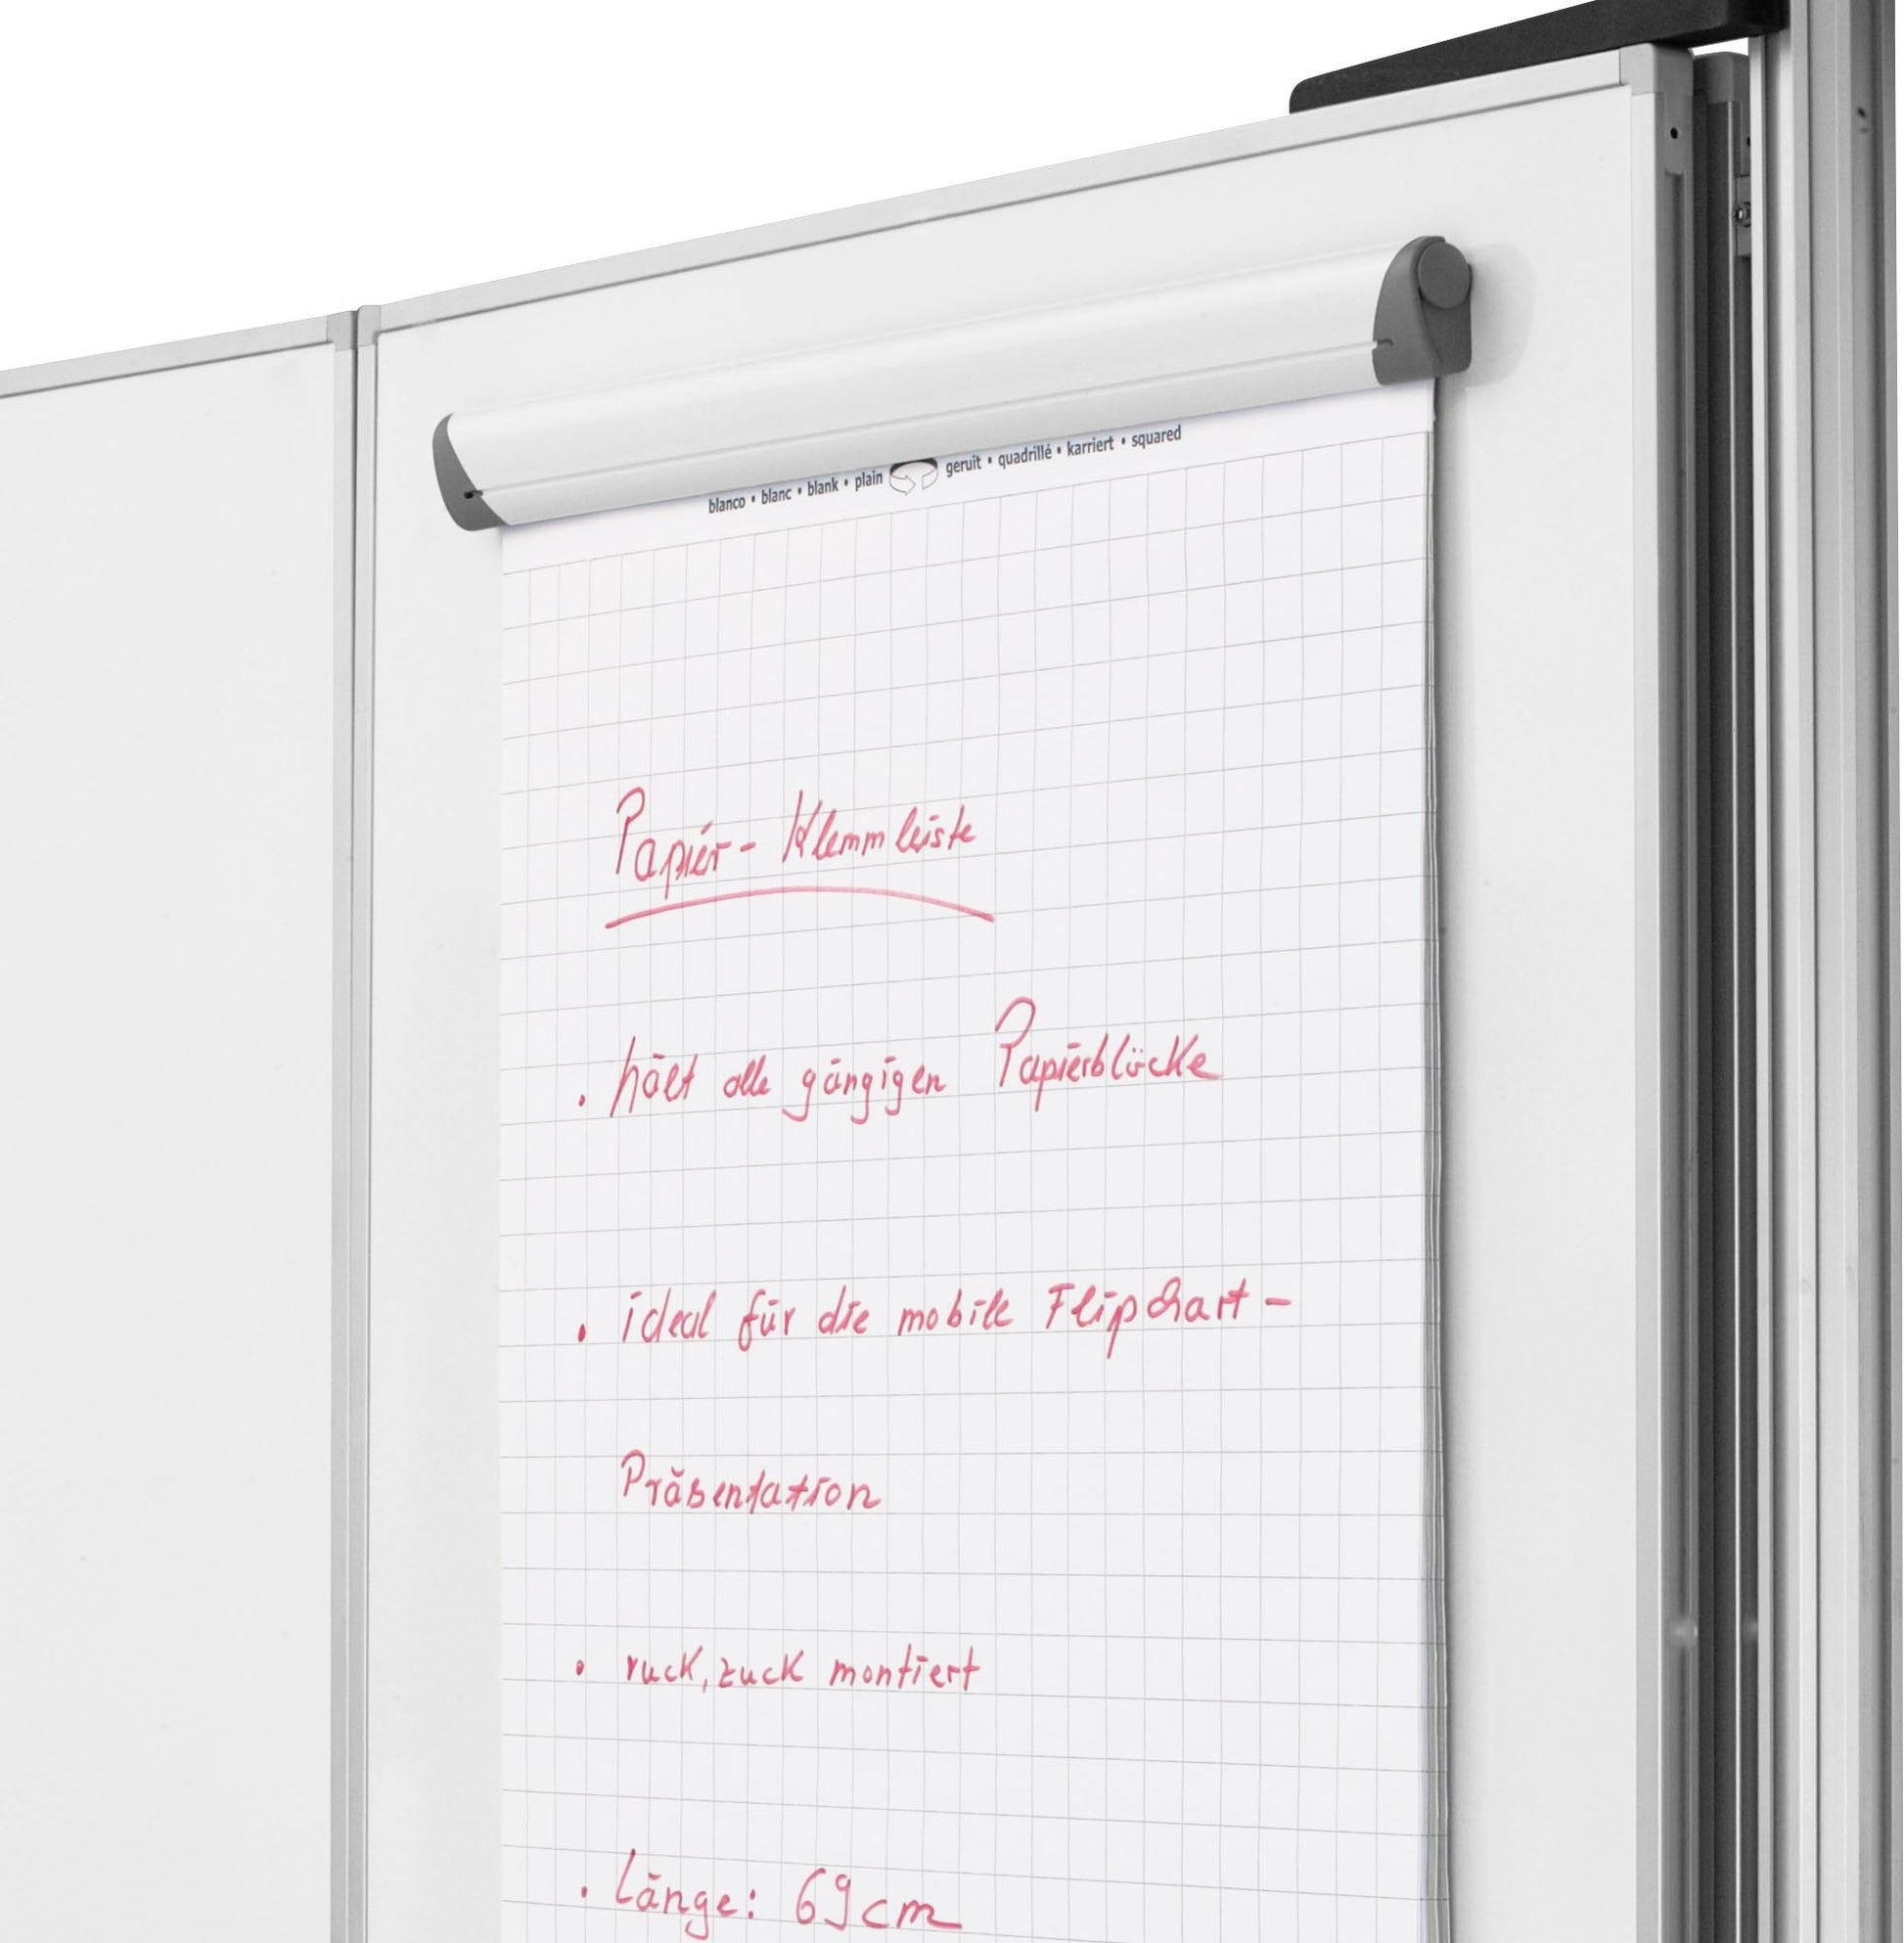 blanco • blanc • blank • plain geruit • quadrillé • karriert • squared
Papier - Klemmleiste
. hält alle gängigen Papierblöcke
. ideal für die mobile Flipchart -
Präsentation
• ruck, zuck montiert
. Länge: 69cm